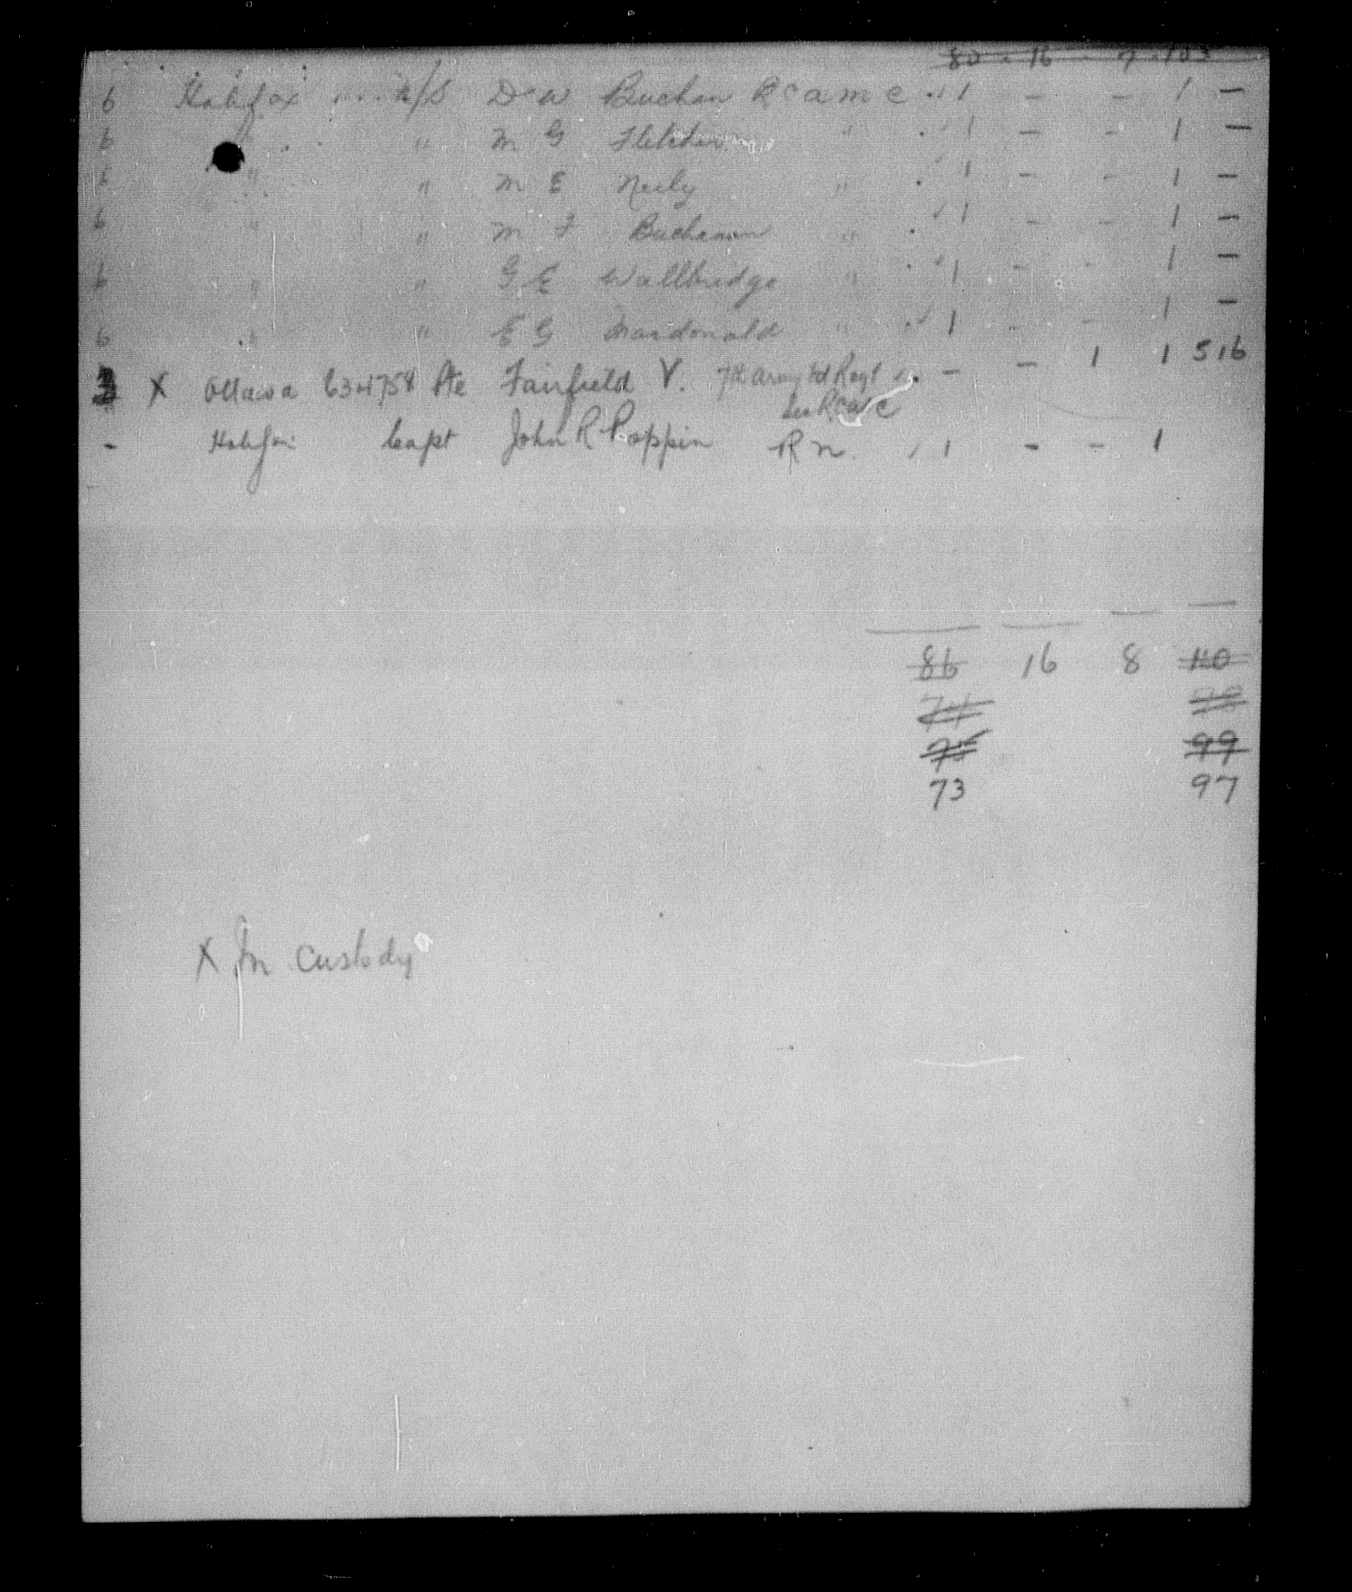 80 - 16 - 7 - 103
6 Halifax ... N/S D W Buchan R C A M C . ✓ 1 - - 1 -
6 " . " M G Fletcher " . ✓ 1 - - 1 -
6 " " M E Neily " . ✓ 1 - - 1 -
6 " " M F Buchanan " . ✓ 1 - - 1 -
6 " " G E Wallbridge " . ✓ 1 - - 1 -
6 " " E G Macdonald " . ✓ 1 - - 1 -
X Ottawa Pte Fairfield V. 7th Army Fd Regt - - 1 1 516
RCAC
- Halifax Capt John R Poppin R N. ✓ 1 - - 1
86 16 8 110
74 98
75 99
73 97
X In custody